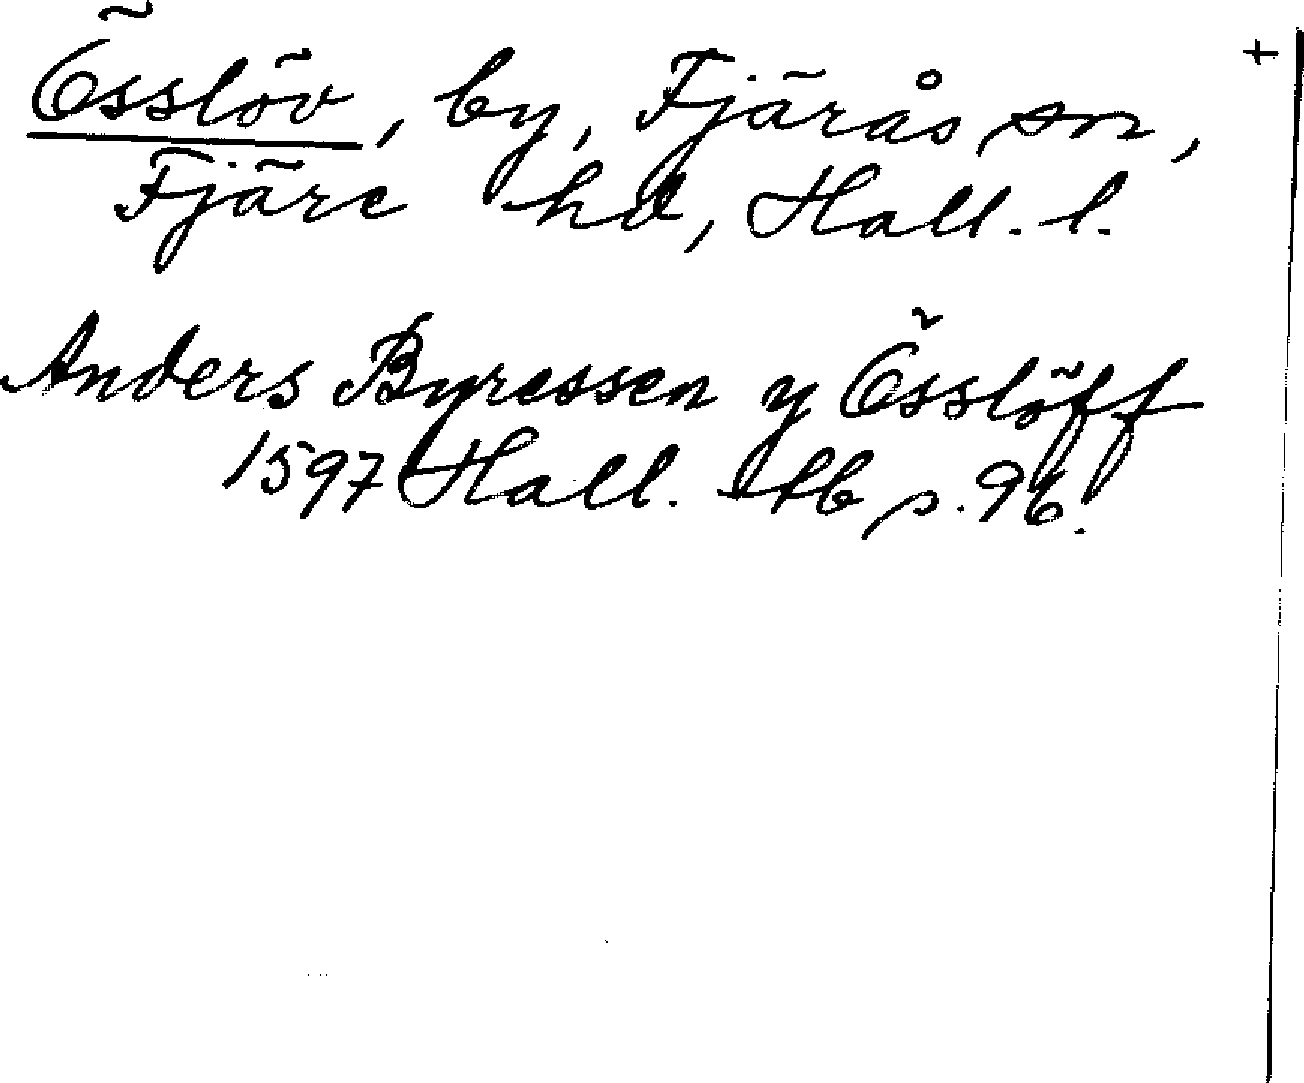 Össlöv, by, Fjärås sn, +
Fjäre hd, Hall. l.
Anders Byressen y Össlöff
1597 Hall. tb s. 96.